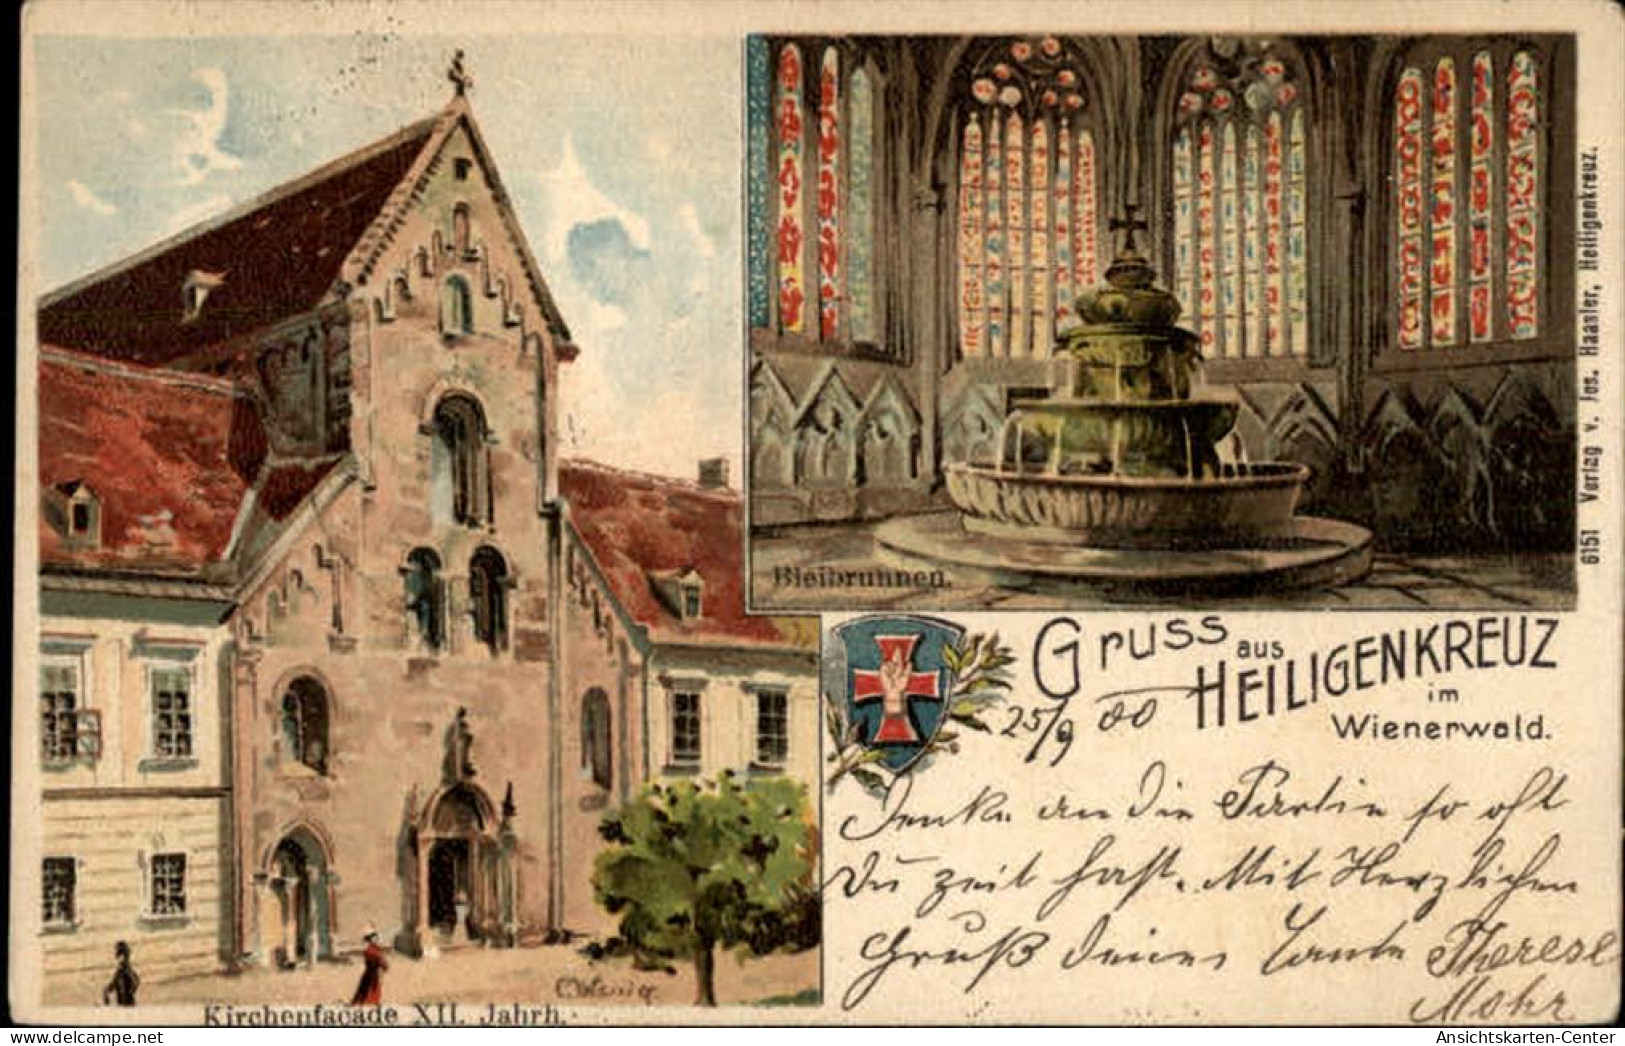 Bleibrunnen.
6151 Verlag v. Jos. Haasler, Heiligenkreuz.
Gruss aus
HEILIGENKREUZ
im
Wienerwald.
25/9 00
Denke an die Partie so oft
Du zeit hast. Mit Herzlichen
Gruß deine Tante Therese
Mohr.
Kirchenfaçade XII. Jahrh.
Ansichtskarten-Center